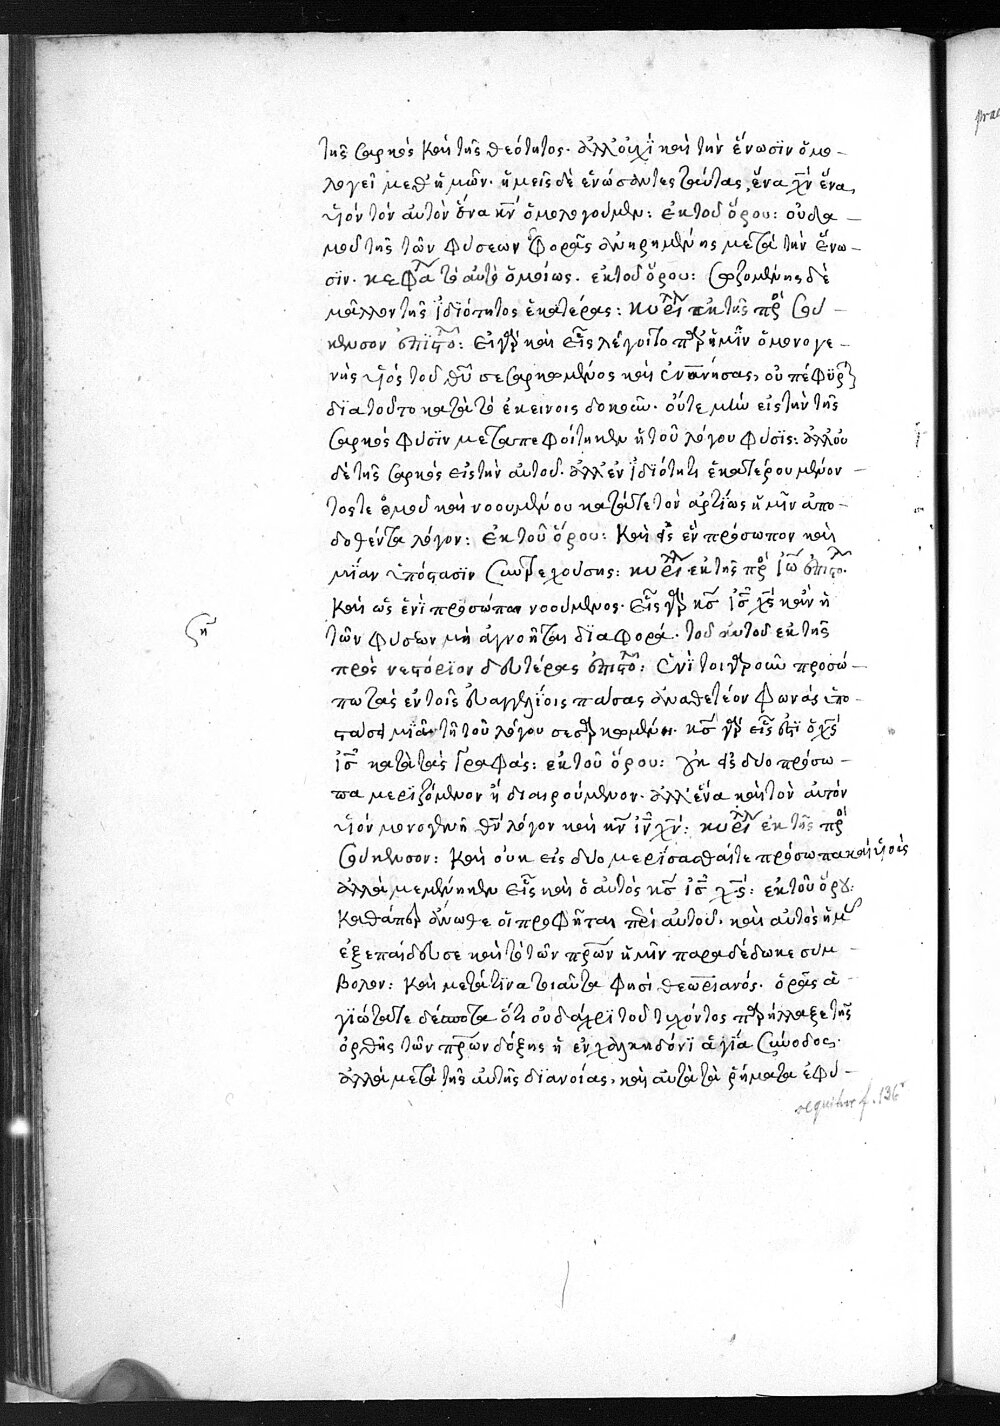 τῆς σαρκὸς καὶ τῆς θεότητος. ἀλλ' οὐχὶ καὶ τὴν ἕνωσϊν ὁμο-
λογεῖ μεθ' ἡμῶν. ἡμεῖς δὲ ἑνώσαντες ταύτας, ἕνα χν ἕνα
υἱὸν τὸν αὐτὸν ἕνα κν ὁμολογοῦμεν: ἐκ τοῦ ὅρου: οὐδα-
μοῦ τῆς τῶν φύσεων διαφορᾶς ἀνῃρημένης μετὰ τὴν ἕνω-
σϊν. τὸ αὐτὸ ὁμοίως. ἐκ τοῦ ὅρου: σωζομένης δὲ
μᾶλλον τῆς ϊδϊότητος ἑκατέρας: ἐκ τῆς πρ σού-
κενσον ἐπιστο: εἰ γὰρ καὶ εἷς λέγοιτο παρ' ἡμῖν ὁ μονογε-
νὴς υἱὸς τοῦ θυ σεσαρκωμένος καὶ ἐνανήσας, οὐ πέφυρ
διὰ τοῦτο κατὰ τὸ ἐκείνοις δοκοῦν. οὔτε μὴν εἰς τὴν τῆς
σαρκὸς φύσϊν μεταπεφοίτηκεν ἡ τοῦ λόγου φύσϊς: ἀλλ' οὐ
δὲ τῆς σαρκὸς εἰς τὴν αὐτοῦ. ἀλλ' ἐν ϊδϊότητι ἑκατέρου μένον-
τός τε ὁμοῦ καὶ νοουμένου κατά τε τὸν ἀρτίως ἡμῖν ἀπο-
δοθέντα λόγον: ἐκ τοῦ ὅρου: καὶ εἰς ἓν πρόσωπον καὶ
μίαν ὑπόστασϊν συντρεχούσης: ἐκ τῆς πρ ϊω ἐπιστο.
καὶ ὡς ἑνὶ προσώπω νοούμενος. εἷς γὰρ κς ις χς κἂν ἡ
τῶν φύσεων μὴ ἀγνοῆται διαφορά. τοῦ αὐτοῦ ἐκ τῆς
πρὸς νεστόριον δευτέρας ἐπιστο: ἑνὶ τοιγαροῦν προσώ-
πω τὰς ἐν τοῖς εὐαγγελίοις πάσας ἀναθετέον φωνάς ὑπο-
στάσει μϊᾶ τῆ τοῦ λόγου σεσαρκωμένη. κς γὰρ εἷς ἐστι ὁ χς
ις κατὰ τὰς γραφάς: ἐκ τοῦ ὅρου: οὐκ εἰς δύο πρόσω-
πα μεριζόμενον ἢ διαιρούμενον. ἀλλ' ἕνα καὶ τὸν αὐτὸν
υἱὸν μονογενῆ θν λόγον καὶ κν ιν χν: ἐκ τῆς πρ
σούκενσον: καὶ οὐκ εἰς δύο μερίσασθαί τε πρόσωπα καὶ
ἀλλὰ μεμένηκεν εἷς καὶ ὁ αὐτὸς κς ις χς: ἐκ τοῦ ὅρου:
καθάπερ ἄνωθε οἱ προφῆται περὶ αὐτοῦ. καὶ αὐτὸς ἡμ
ἐξεπαίδευσε καὶ τὸ τῶν πρων ἡμῖν παραδέδωκε σύμ-
βολον: καὶ μετά τϊνα τοιαῦτα φησὶ θεωριανός. ὁρᾶς ἁ-
γιώτατε δέσποτα ὅτι οὐδ' ἄχρι τοῦ τυχόντος παρήλλαξε τῆς
ὀρθῆς τῶν πρων δόξης ἡ ἐν χαλκηδόνϊ ἁγία σύνοδος.
ἀλλὰ μετὰ τῆς αὐτῆς διανοίας, καὶ αὐτὰ τὰ ῥήματα ἐφύ-
sequitur f. 136